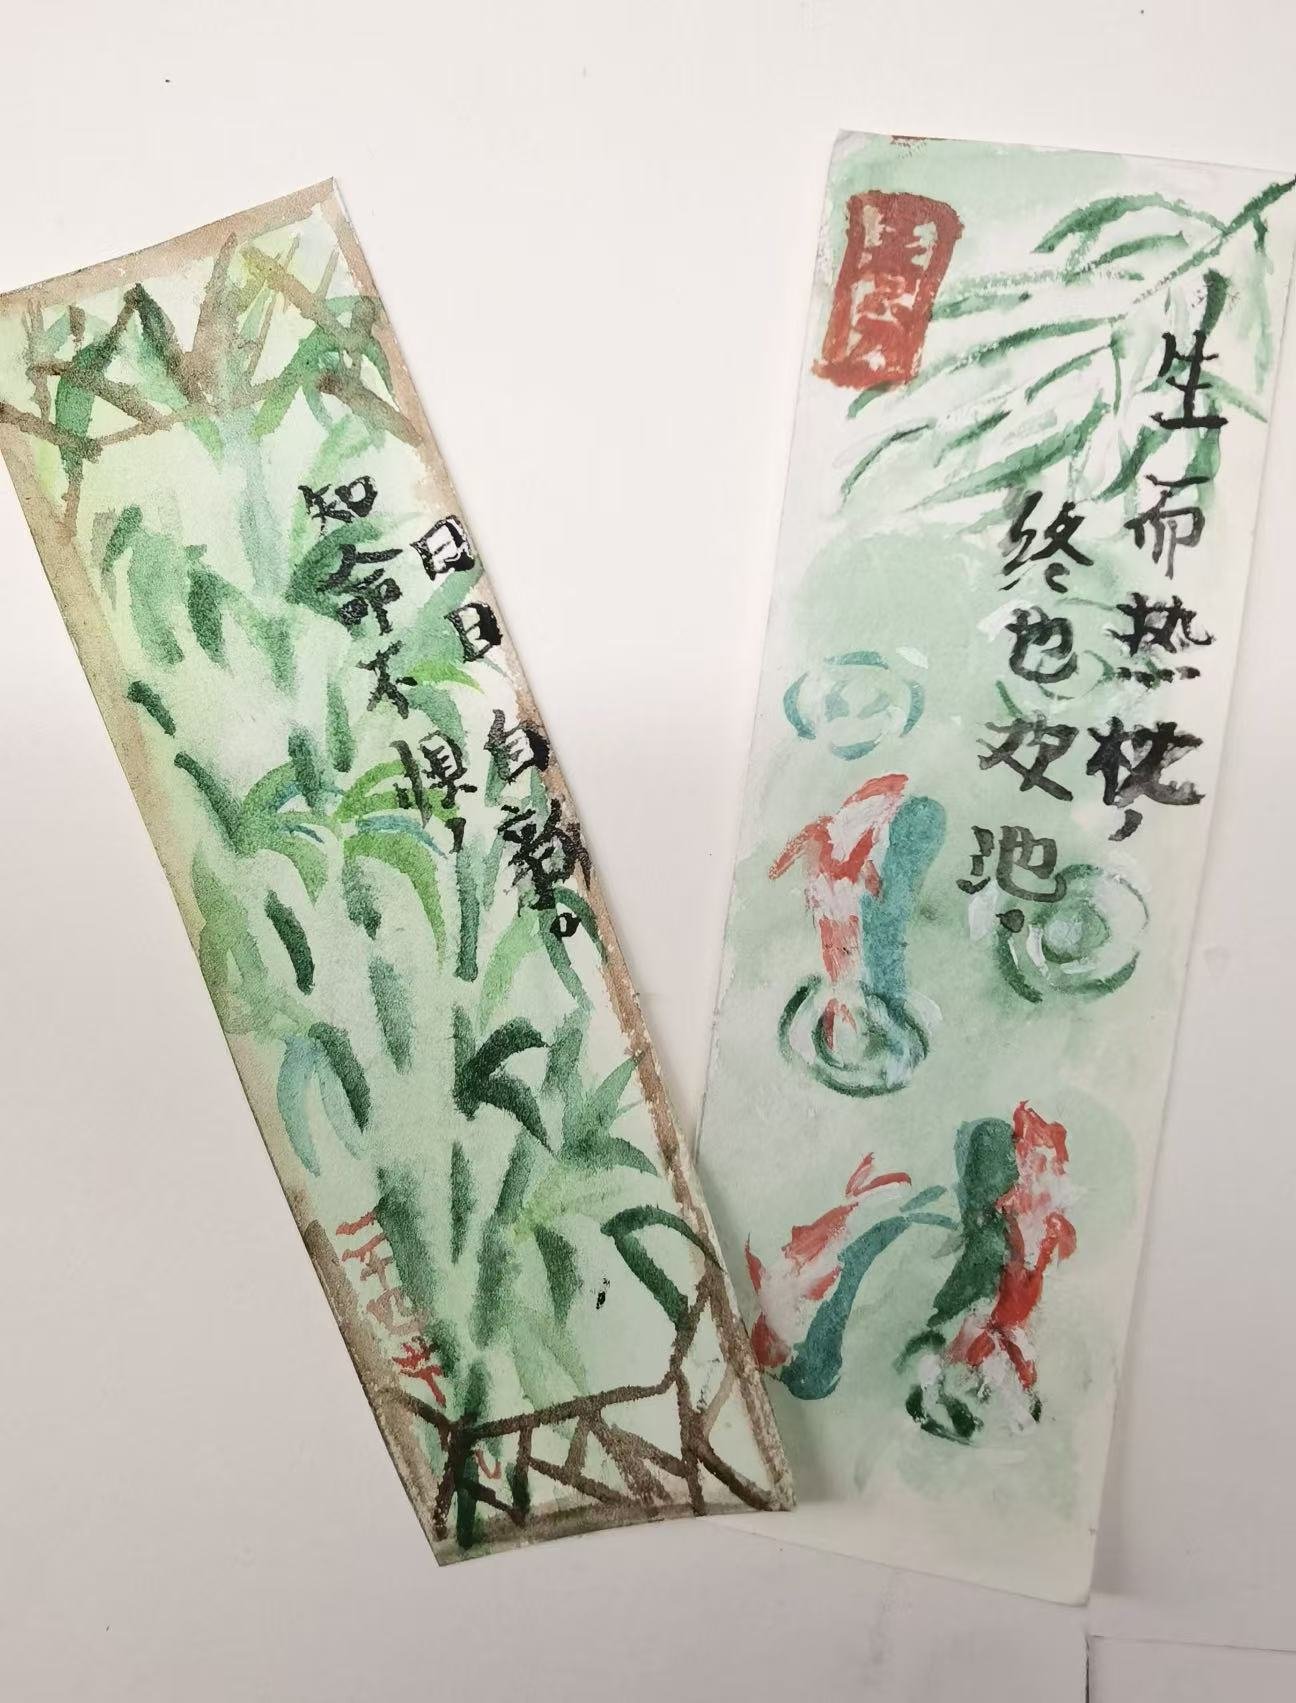 知命不惧，
日日自新。
生而热枕，
终也欢池.